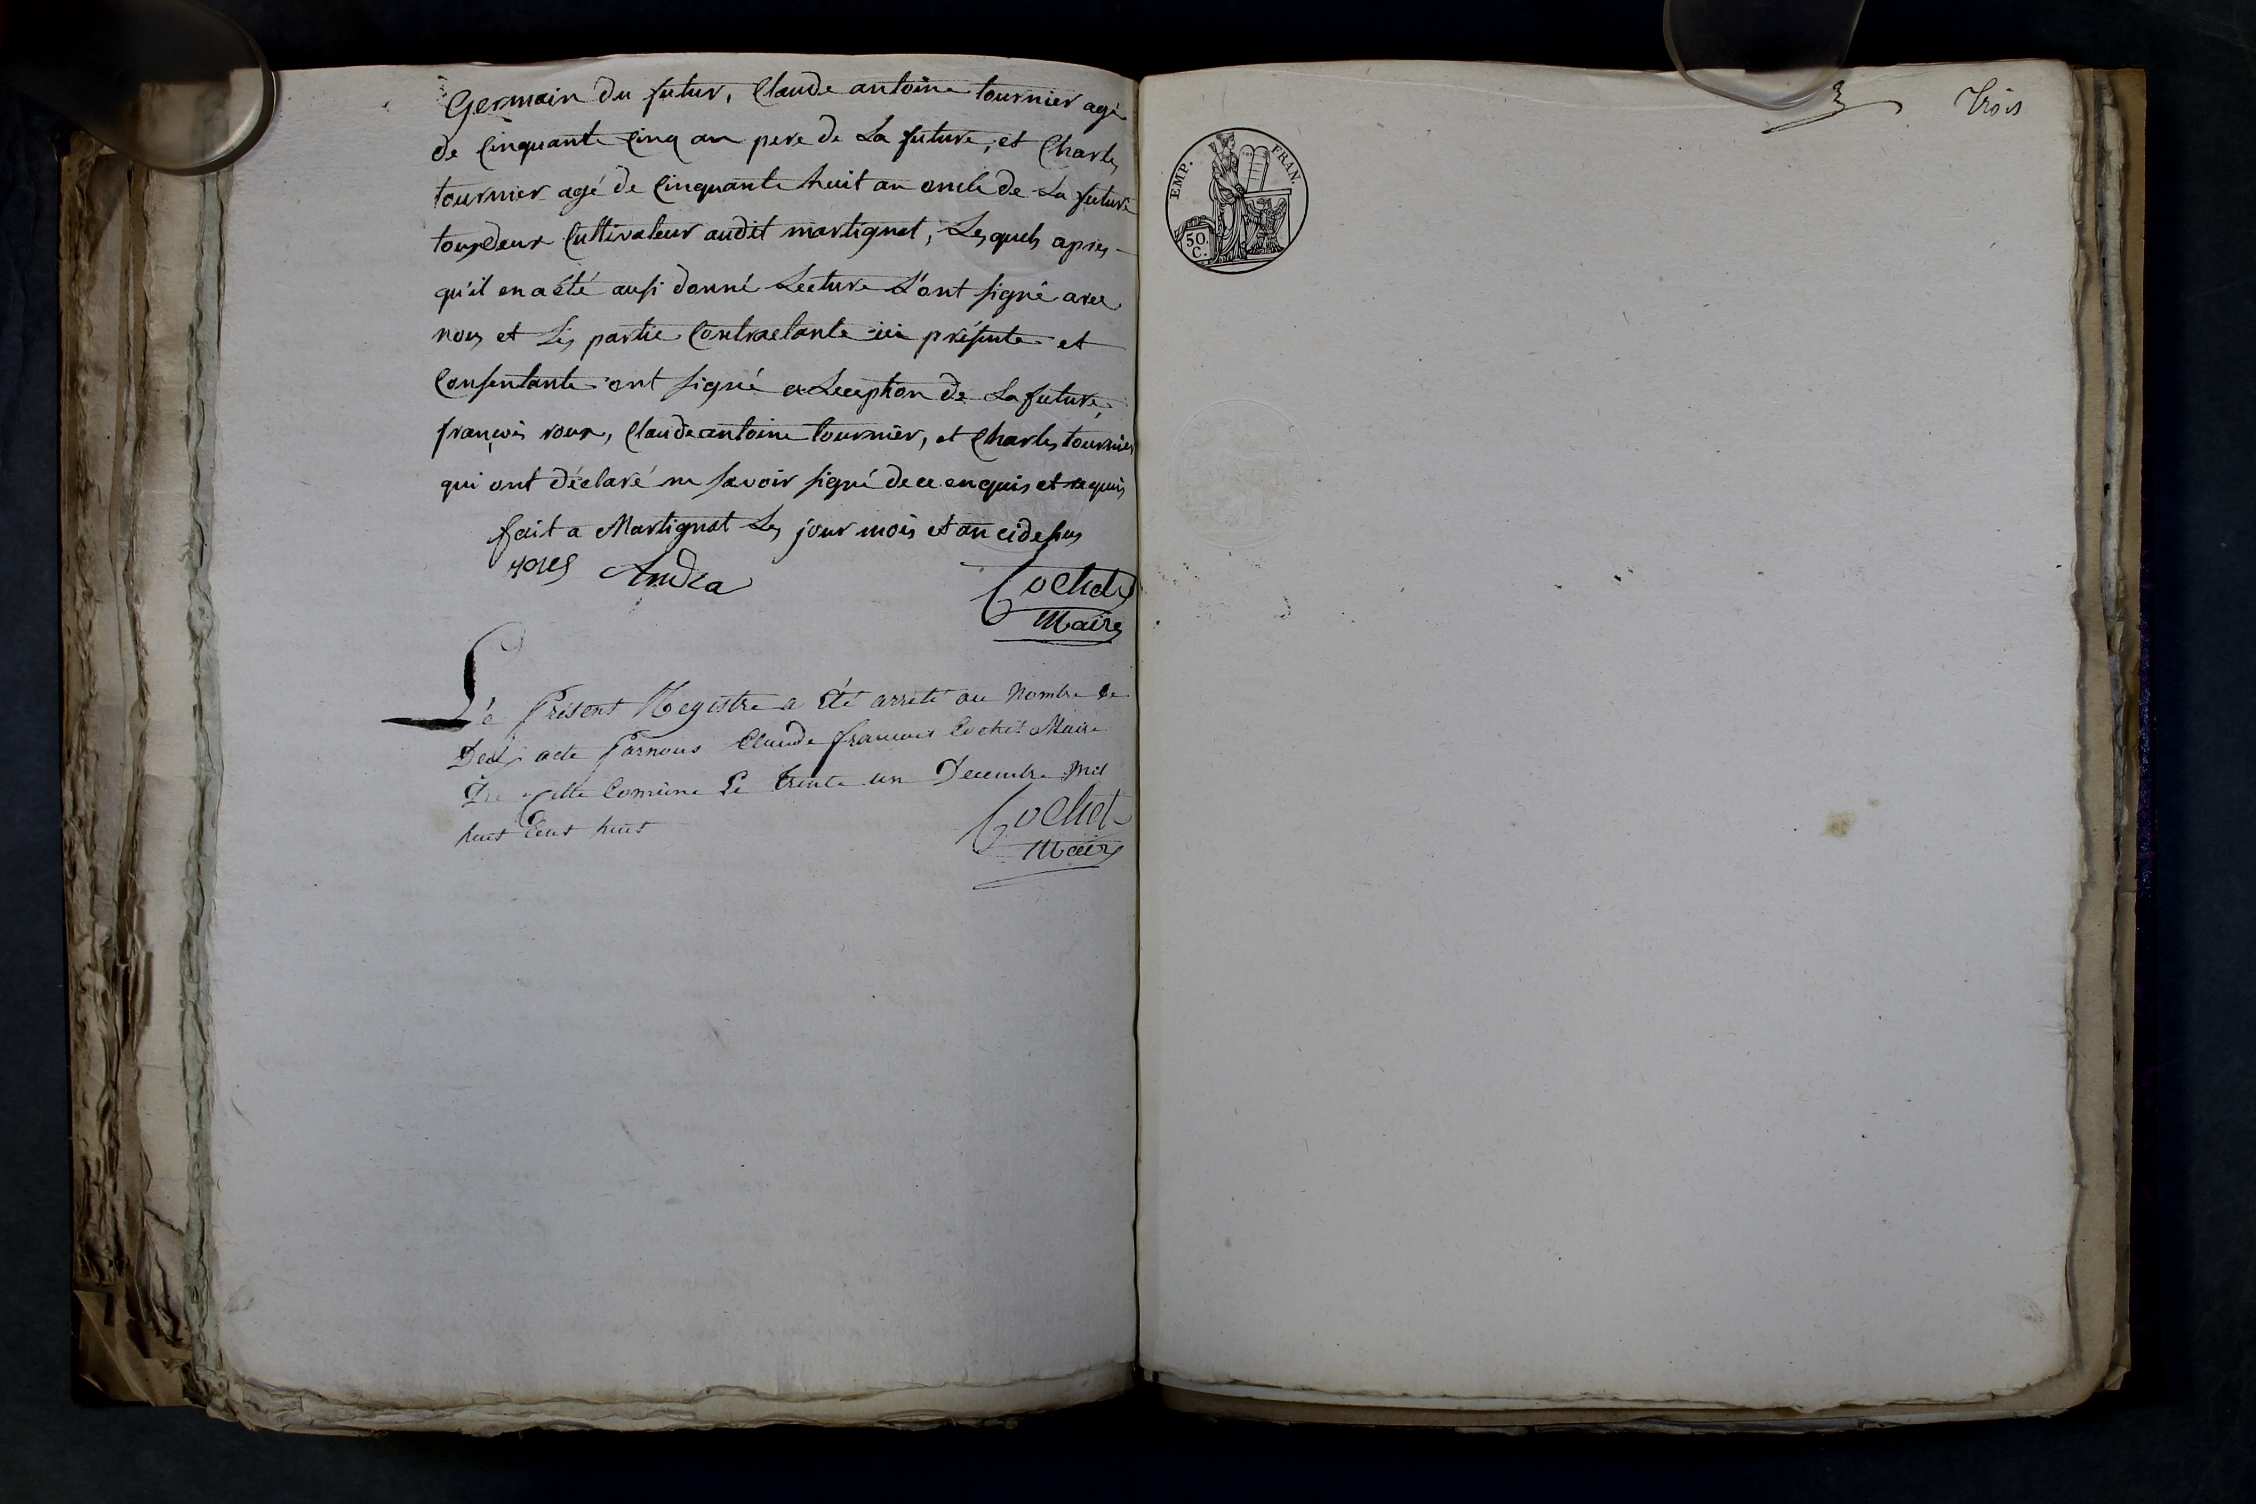 Germain du futur, Claude antoine tournier agé
de Cinquante Cinq an pere de La future, et Charles
tournier agé de Cinquante huit an oncle de La future
tous deux Cultivateur audit martignat, Lesquels apres
qu'il en a été aussi donné Lecture L'ont signé avec
nous et Les partie Contractante ici présente et
Consentante ont signé a Lexeption de La future,
françois roux, Claude antoine tournier, et Charles tournier
qui ont déclaré ne savoir signé de ce enquis et requis
fait a Martignat Les jour mois et an ci dessus
Andra
Cochet
Maire
Le Présent Registre a été arrêté au Nombre de
Deux acte Parnous Claude francois Cochet Maire
De Cette Comune Le trente un Decembre Mil
huit Cent huit
Cochet
Maire
3
Trois
EMP. FRAN.
50.
C.